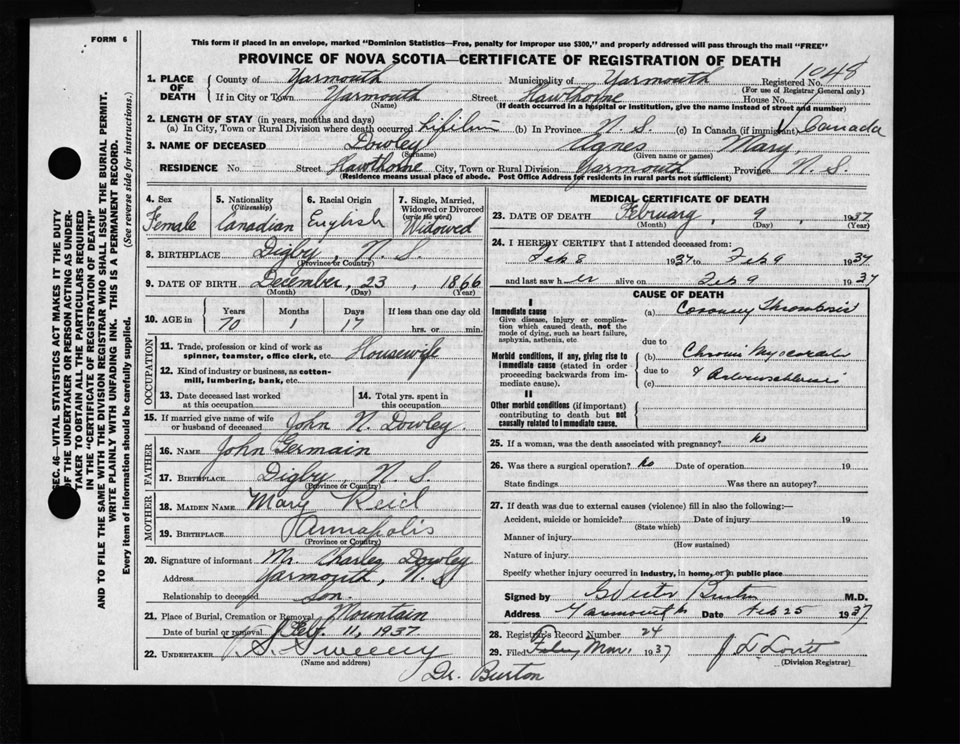 FORM 6
This form if placed in an envelope, marked "Dominion Statistics—Free, penalty for improper use $300," and properly addressed will pass through the mail "FREE"
PROVINCE OF NOVA SCOTIA—CERTIFICATE OF REGISTRATION OF DEATH
1. PLACE OF DEATH County of Yarmouth Municipality of Yarmouth Registered No. 1048
(For use of Registrar General only)
If in City or Town Yarmouth Street Hawthorne House No.
(Name) (If death occurred in a hospital or institution, give the name instead of street and number)
2. LENGTH OF STAY (in years, months and days)
(a) In City, Town or Rural Division where death occurred (b) In Province N. S. (c) In Canada (if immigrant) Canada
3. NAME OF DECEASED Dowley Agnes Mary
(Surname) (Given name or names)
RESIDENCE No. Street Hawthorne City, Town or Rural Division Yarmouth, Province N. S.
(Residence means usual place of abode. Post Office Address for residents in rural parts not sufficient)
SEC. 46—VITAL STATISTICS ACT MAKES IT THE DUTY
OF THE UNDERTAKER OR PERSON ACTING AS UNDER-
TAKER TO OBTAIN ALL THE PARTICULARS REQUIRED
IN THE "CERTIFICATE OF REGISTRATION OF DEATH"
AND TO FILE THE SAME WITH THE DIVISION REGISTRAR WHO SHALL ISSUE THE BURIAL PERMIT.
WRITE PLAINLY WITH UNFADING INK. THIS IS A PERMANENT RECORD.
Every item of information should be carefully supplied. (See reverse side for instructions.)
4. Sex Female
5. Nationality (Citizenship) Canadian
6. Racial Origin English
7. Single, Married, Widowed or Divorced (write the word) Widowed
8. BIRTHPLACE Digby, N. S.
(Province or Country)
9. DATE OF BIRTH December, 23, 1866
(Month) (Day) (Year)
10. AGE in Years 70 Months 1 Days 17 If less than one day old hrs. or min.
OCCUPATION
11. Trade, profession or kind of work as spinner, teamster, office clerk, etc. Housewife
12. Kind of industry or business, as cotton-mill, lumbering, bank, etc.
13. Date deceased last worked at this occupation
14. Total yrs. spent in this occupation
15. If married give name of wife or husband of deceased John N. Dowley.
FATHER
16. NAME John Germain
17. BIRTHPLACE Digby, N. S.
(Province or Country)
MOTHER
18. MAIDEN NAME Mary Reid
19. BIRTHPLACE Annapolis
(Province or Country)
20. Signature of informant Mr. Charles Dowley
Address Yarmouth, N. S.
Relationship to deceased Son.
21. Place of Burial, Cremation or Removal Mountain
Date of burial or removal Feb. 11, 1937.
22. UNDERTAKER Sweeny
(Name and address)
Dr. Burton
MEDICAL CERTIFICATE OF DEATH
23. DATE OF DEATH February, 9, 1937
(Month) (Day) (Year)
24. I HEREBY CERTIFY that I attended deceased from:
Feb 8 1937 to Feb 9 1937
and last saw her alive on Feb 9 1937
CAUSE OF DEATH
I
Immediate cause
Give disease, injury or complication which caused death, not the mode of dying, such as heart failure, asphyxia, asthenia, etc.
(a) Coronary Thrombosis
due to
Morbid conditions, if any, giving rise to immediate cause (stated in order proceeding backwards from immediate cause).
(b) Chronic
due to
(c)
II
Other morbid conditions (if important) contributing to death but not causally related to immediate cause.
25. If a woman, was the death associated with pregnancy? No
26. Was there a surgical operation? No Date of operation 19
State findings Was there an autopsy?
27. If death was due to external causes (violence) fill in also the following:—
Accident, suicide or homicide? Date of injury 19
(State which)
Manner of injury
(How sustained)
Nature of injury
Specify whether injury occurred in industry, in home, or in public place
Signed by Burton M.D.
Address Yarmouth Date Feb 25 1937
28. Registrar's Record Number 24
29. Filed Mar. 1937
(Division Registrar)